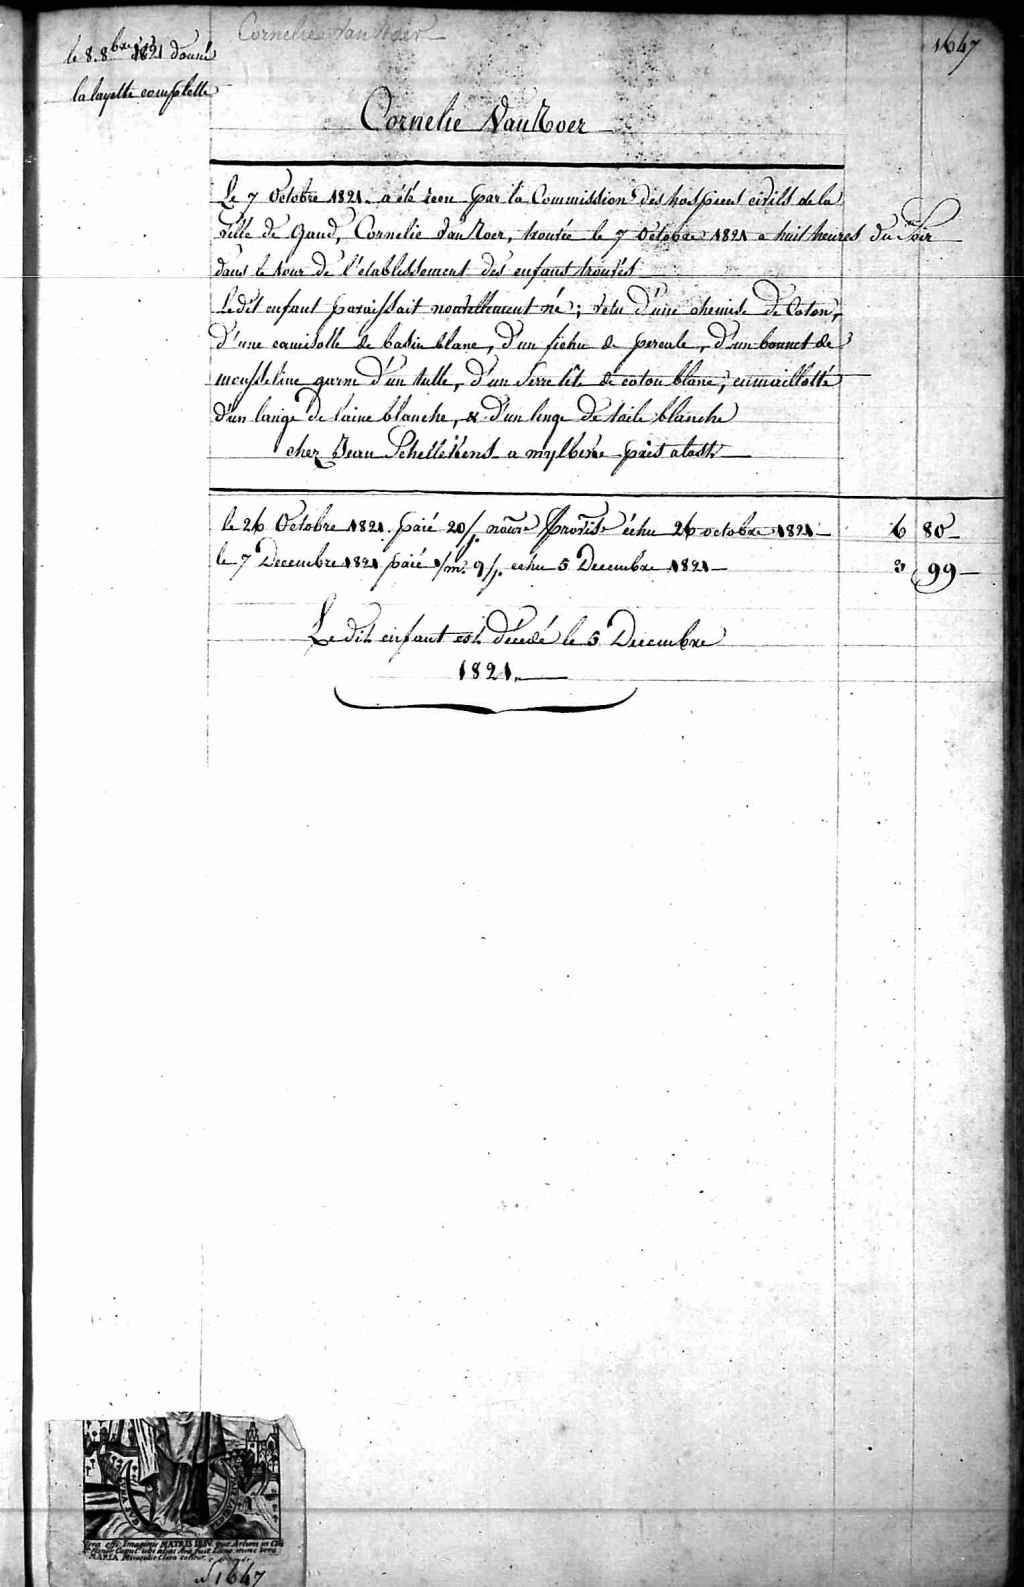 Cornelie Van Roer
1647
le 8. 8bre 1821 donné
la layette complette
Cornelie Van Roer
Le 7 Octobre 1821. a été recu par la Commission des hospices civils de la
Ville de Gand, Cornelie Van Roer, trouvée le 7 Octobre 1821 a huit heures du Soir
dans le tour de l'etablissement des enfants trouvés
Ledit enfant paraissait nouvellement né; vetu d'une chemise de Coton,
d'une camisolle de basin blanc, d'un fichu de percale, d'un bonnet de
mousseline garni d'un tulle, d'un Serre tête de coton blanc, emmaillotté
d'un lange de laine blanche, & d'un linge de toile blanche
chez Jean Schellekens a mylbeke près alost
le 26 Octobre 1821. paié 20/ Provise échu 26 octobre 1821 6 80
le 7 Decembre 1821 paié 9/ echu 5 Decembre 1821 3 99
Le dit enfant est décédé le 5 Decembre
1821.
MATRIS in
MARIA Miraculis Clara colitur.
1647